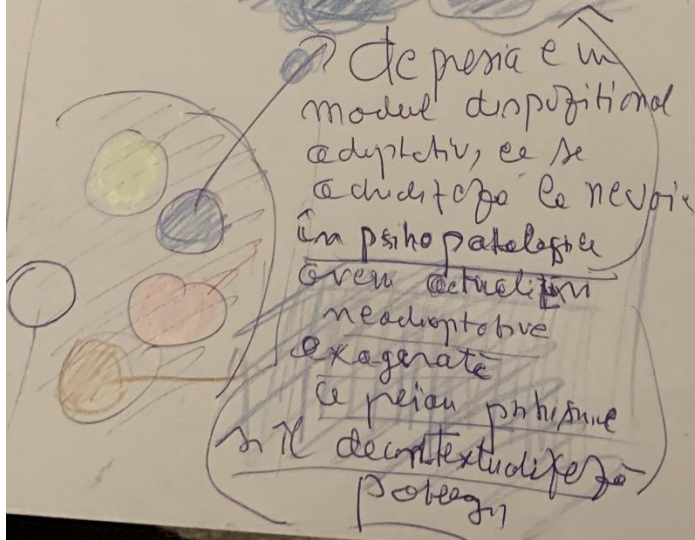 depresia e un
modul dispozițional
adaptativ, ce se
actualizează la nevoie
în psihopatologie
avem actualizări
neadaptative
exagerate
ce preiau
și îl decontextualizează